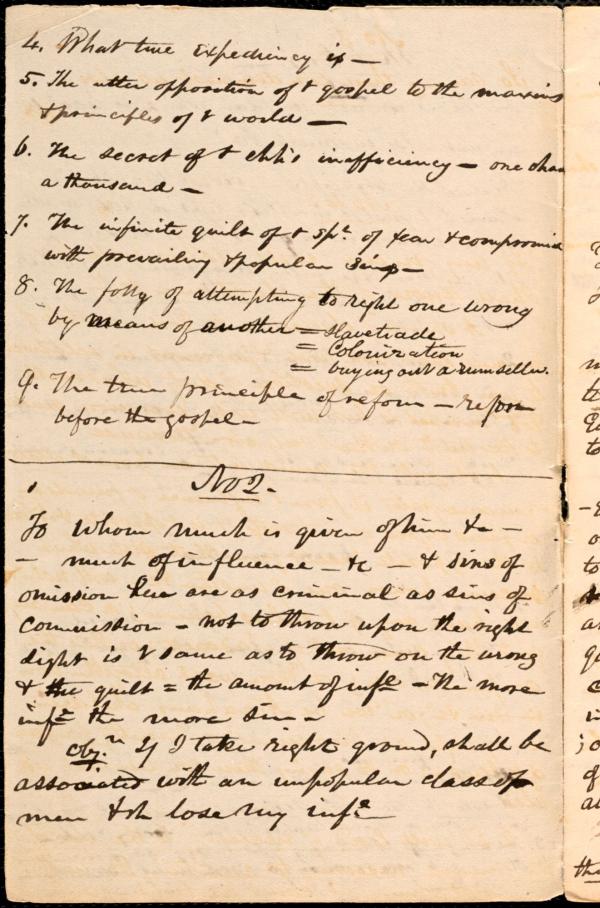 4. What true expediency is —
5. The utter opposition of & gospel to the maxims
& principles of & world —
6. The secret of & chh's inefficiency — one chase
a thousand —
7. The infinite guilt of & spt. of fear & compromise
with prevailing & popular sins —
8. The folly of attempting to right one wrong
by means of another = Slavetrade
= Colonization
= buying out a rumseller.
9. The true principle of reform — repent
before the gospel —
No 2.
To whom much is given of him &c —
— much of influence — &c — & sins of
omission here are as criminal as sins of
commission — not to throw upon the right
side is & same as to throw on the wrong
& the guilt = the amount of infce — The more
infce the more sin —
objn If I take right ground, shall be
associated with an unpopular class of
men & sh lose my infce